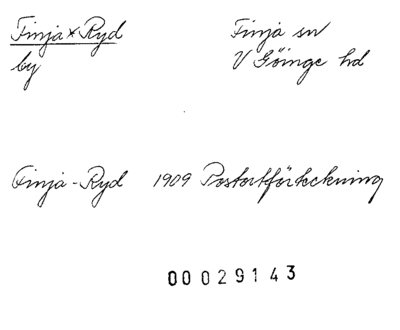 Finja×Ryd
by
Finja sn
V Göinge hd
Finja-Ryd 1909 Postortförteckning
00029143